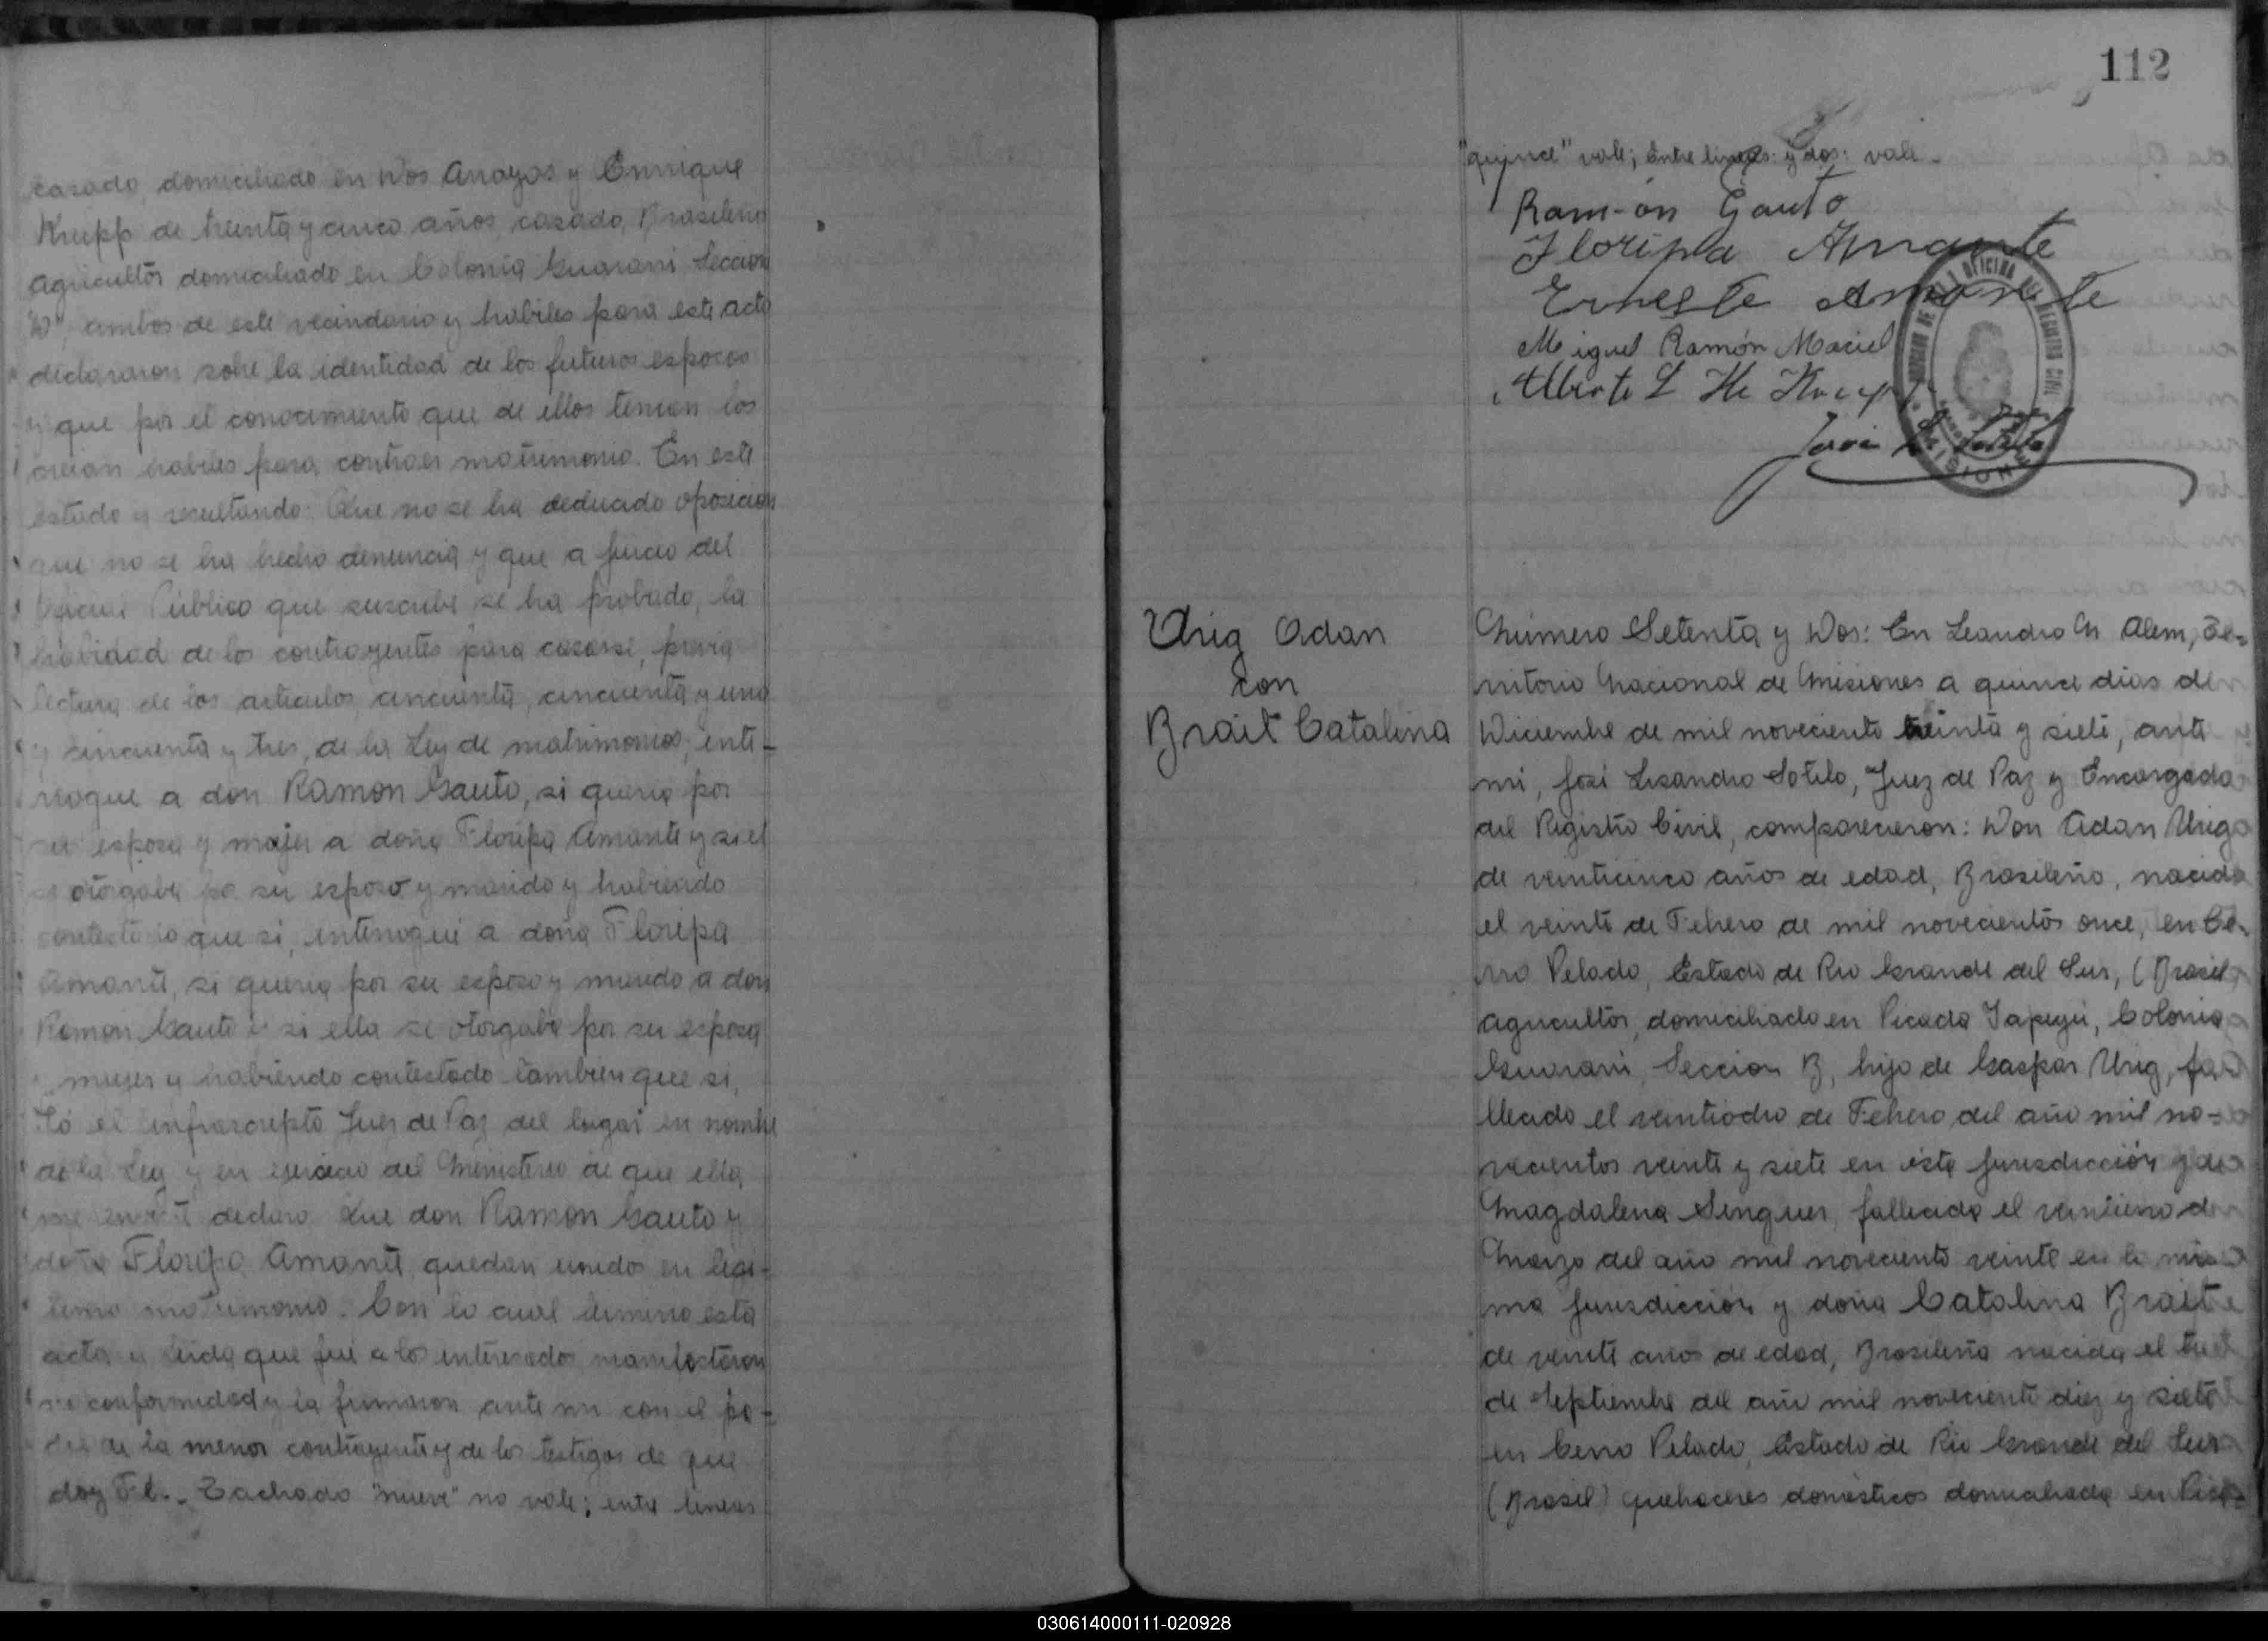 casado, domiciliado en Dos Arroyos y Enrique
Krupp de treinta y cinco años, casado, Brasileño
agricultor domiciliado en Colonia Guarani Seccion
"D", ambos de este vecindario y habiles para este acto
declararon sobre la identidad de los futuros esposos
y que por el conocimiento que de ellos tenian los
creian habiles para contraer matrimonio. En este
estado y resultando: Que no se ha deducido oposicion
que no se ha hecho denuncia y que a juicio del
Oficial Público que suscribe se ha probado, la
habilidad de los contrayentes para casarse, previa
lectura de los articulos, cincuenta, cincuenta y uno
y cincuenta y tres, de la Ley de matrimonios, inte-
rrogue a don Ramon Gauto, si queria por
su esposa y mujer a doña Floripa Amante y si el
se otorgaba por su esposo y marido y habiendo
contestado que si, interrogué a doña Floripa
Amante, si queria por su esposo y marido a don
Ramon Gauto y si ella se otorgaba por su esposa
y mujer y habiendo contestado tambien que si,
Yo el infrascripto Juez de Paz del lugar en nombre
de la Ley y en ejercicio del Ministerio de que ella
me enviste declaro que don Ramon Gauto y
doña Floripa Amante quedan unidos en legi-
timo matrimonio. Con lo cual termino esta
acta y leida que fué a los interesados manifestaron
su conformidad y la firmaron ante mi con el pa-
dre de la menor contrayente y de los testigos de que
doy Fé.- Tachado "nueve" no vale; entre lineas
112
"quince" vale; Entre lineas: y dos: vale-
Ramón Gauto
Floripa Amante
Ernesto Amante
Miguel Ramón Maciel
Alberto L He Krupp
José L. Sotelo
OFICINA DEL REGISTRO CIVIL
MISIONES
Urig Adan
con
Brait Catalina
Número Setenta y Dos: En Leandro N Alem, Te-
rritorio Nacional de Misiones a quince dias de
Diciembre de mil noveciento treinta y siete, ante
mi, José Lisandro Sotelo, Juez de Paz y Encargado
del Registro Civil, comparecieron: Don Adan Urig
de veinticinco años de edad, Brasileño, nacido
el veinte de Febrero de mil novecientos once, en Ce-
rro Pelado, Estado de Rio Grande del Sur, (Brasil)
agricultor, domiciliado en Picada Yapeyú, Colonia
Guarani, Seccion B, hijo de Gaspar Urig, fa-
llecido el veintiocho de Febrero del año mil no-
vecientos veinte y siete en ésta jurisdicción y de
Magdalena Singuer, fallecida el veintiuno de
Marzo del año mil noveciento veinte en la mis-
ma jurisdicción y doña Catalina Brait
de veinte años de edad, Brasileña nacida el tres
de Septiembre del año mil noveciento diez y siete
en Cerro Pelado, Estado de Rio Grande del Sur
(Brasil) quehaceres domésticos domiciliada en Pica-
030614000111-020928